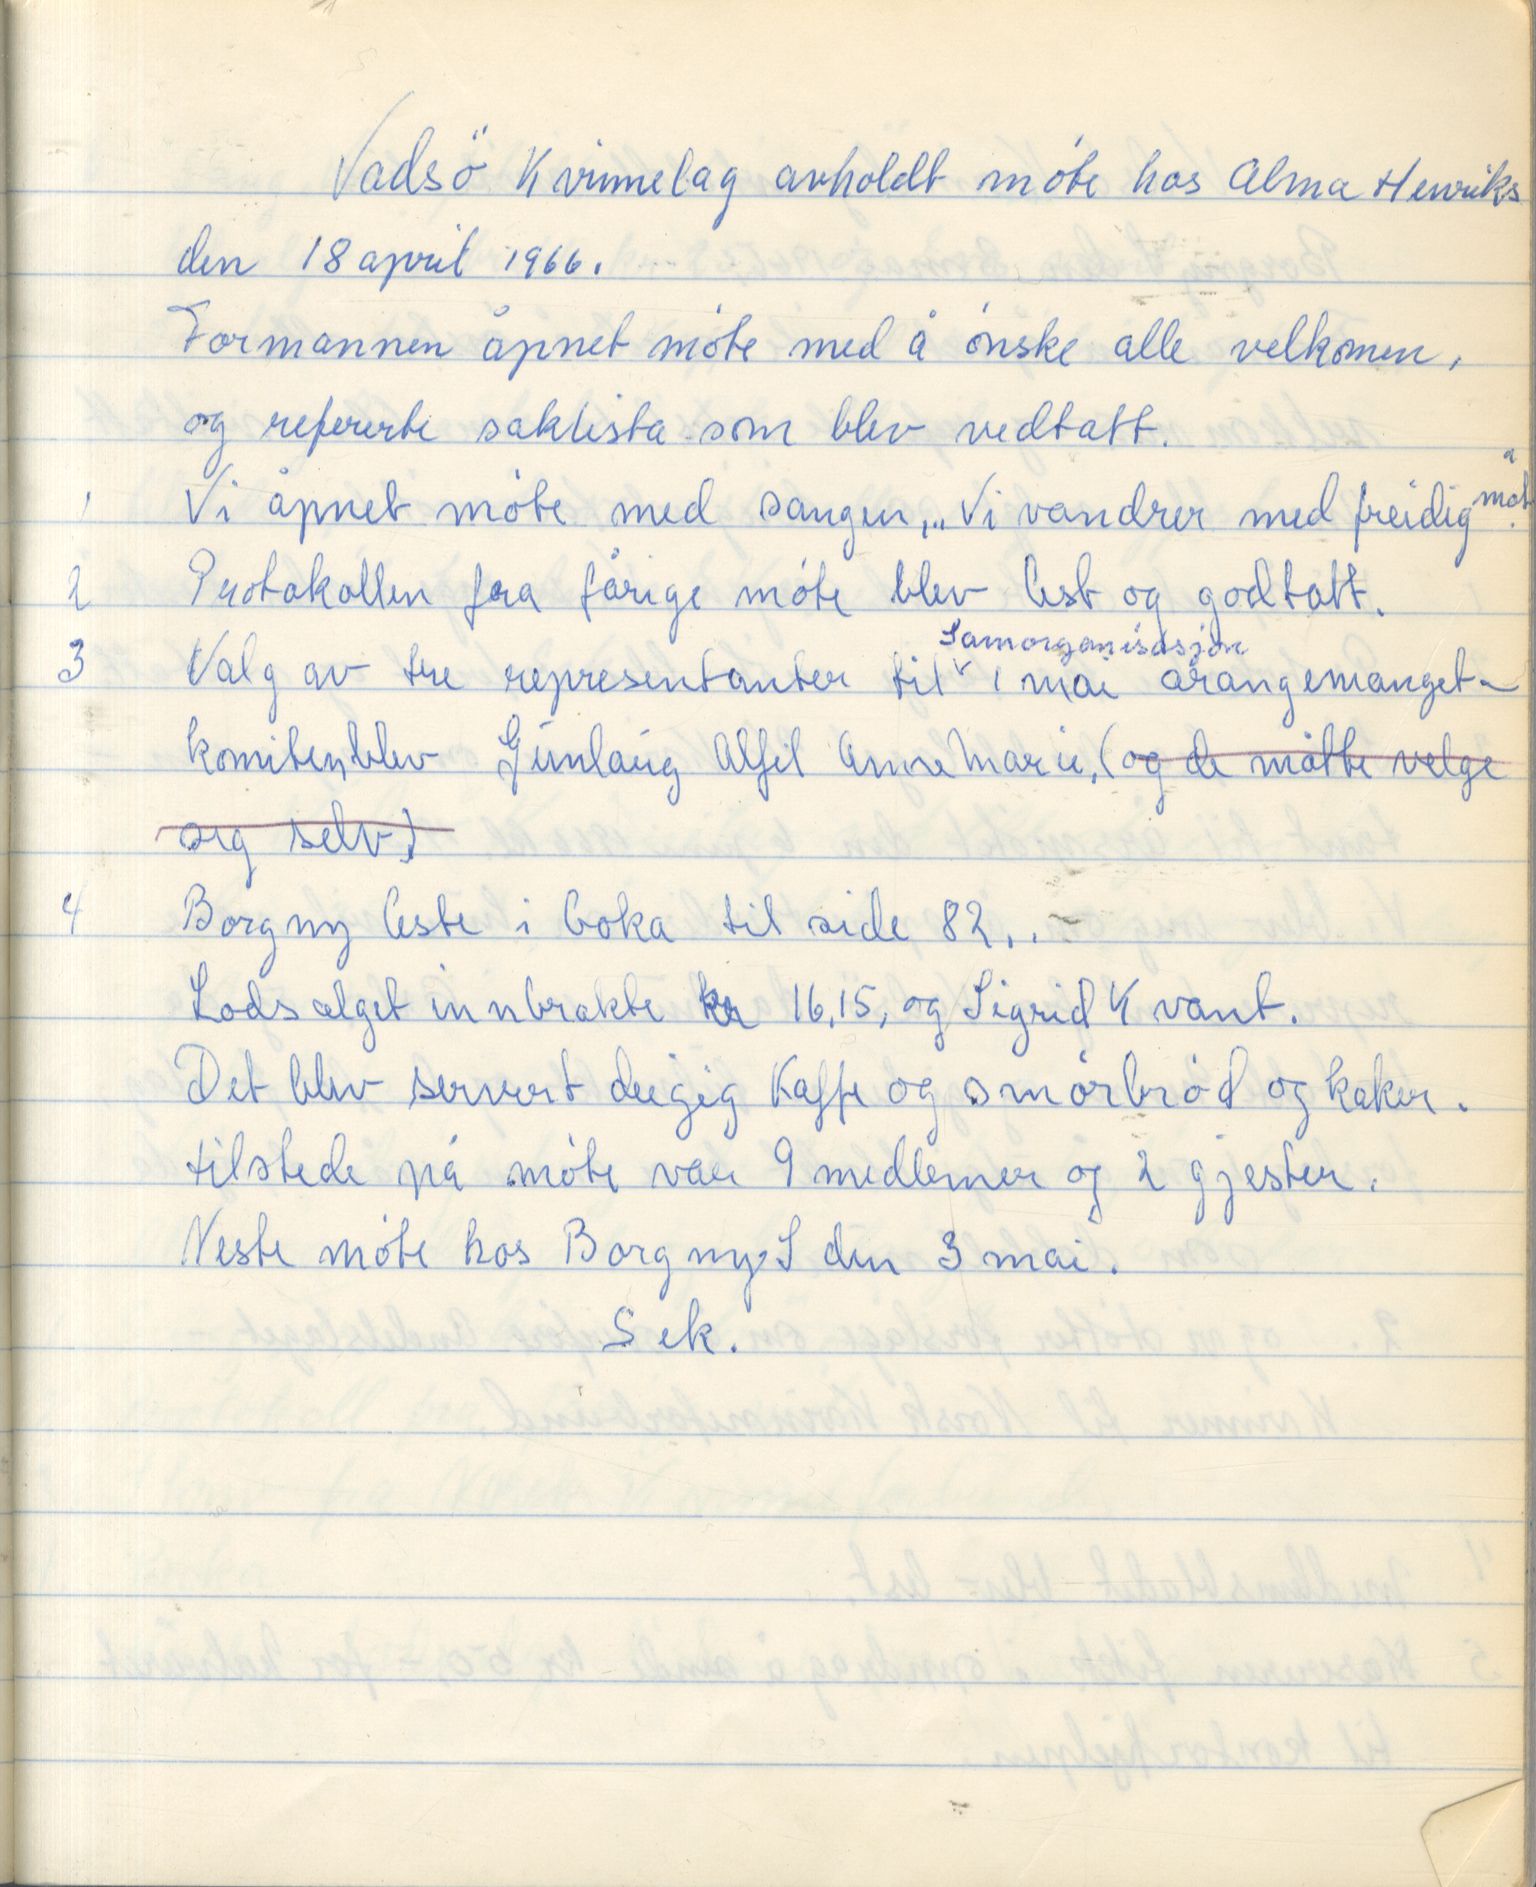 Vadsö Kvinnelag avholdt möte hos Alma Henriks
den 18 april 1966.
Formannen åpnet möte med å önske alle velkomen,
og refererte saklista som blev vedtatt.
1 Vi åpnet möte med sangen, „Vi vandrer med freidig mot
2 Protokollen fra fårige möte blev lest og godtatt.
Samorganisasjon
3 Valg av tre representanter til 1 mai arangemanget-
komiteen, blev Gunlaug Alfil Anne Marie, (og de måtte velge
seg selv)
4 Borgny leste i boka til side 82..
Lodsalget innbrakte kr 16,15, og Sigrid K vant.
Det blev servert deigig Kaffe og smörbröd og kaker.
tilstede på möte var 9 medlemer og 2 gjester.
Neste möte hos Borgny S den 3 mai.
Sek.